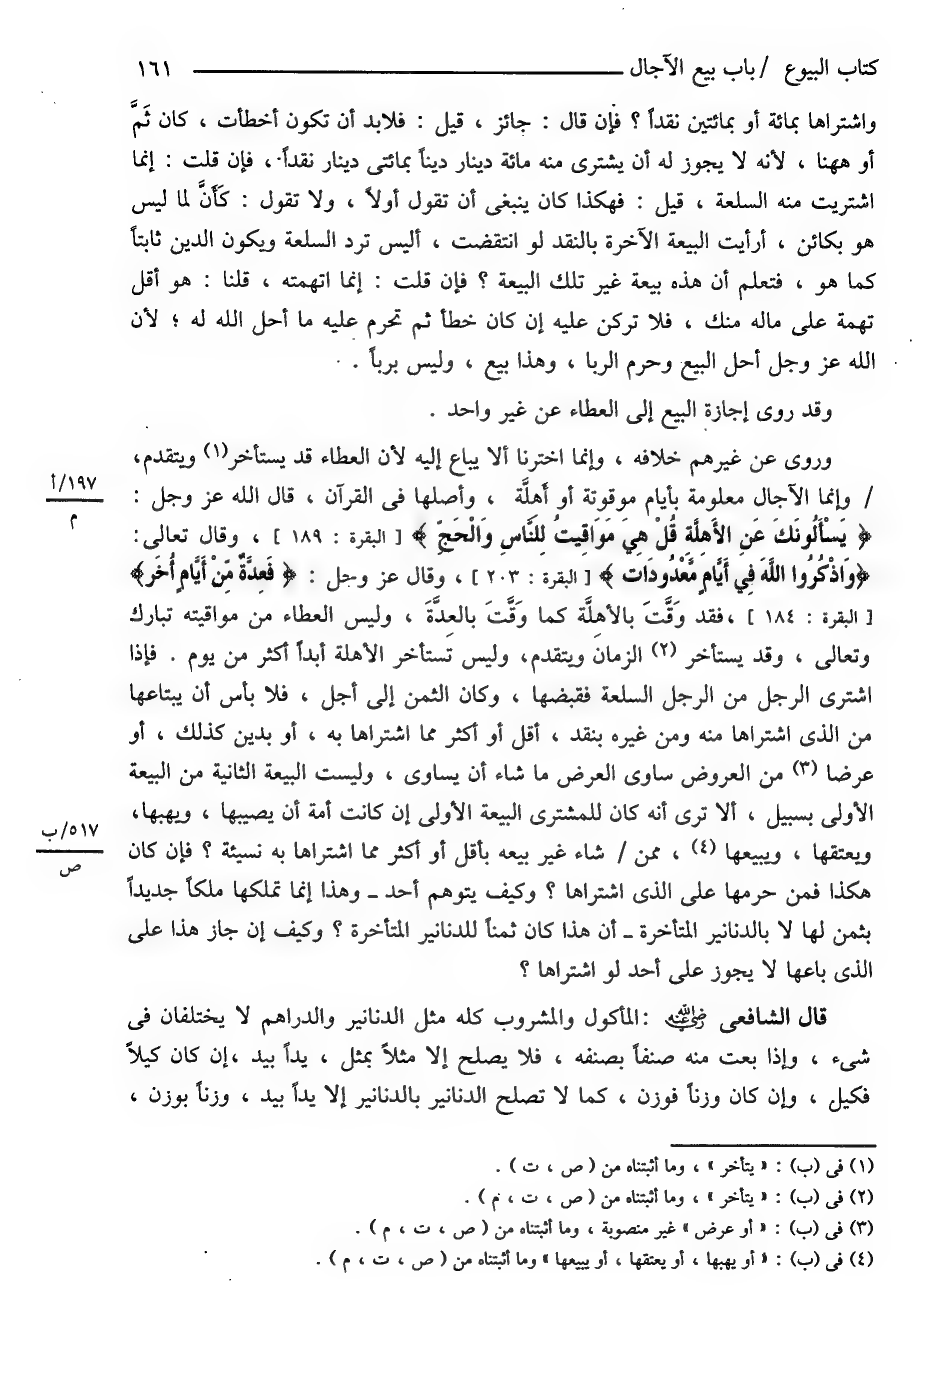 كتاب البيوع / باب بيع الآجال ١٦١
واشتراها بمائة أو بمائتين نقداً ؟ فإن قال : جائز ، قيل : فلابد أن تكون أخطأت ، كان ثَمَّ
أو ههنا ، لأنه لا يجوز له أن يشترى منه مائة دينار ديناً بمائتى دينار نقداً ، فإن قلت : إنما
اشتريت منه السلعة ، قيل : فهكذا كان ينبغى أن تقول أولاً ، ولا تقول : كَأَنَّ لما ليس
هو بكائن ، أرأيت البيعة الآخرة بالنقد لو انتقضت ، أليس ترد السلعة ويكون الدين ثابتاً
كما هو ، فتعلم أن هذه بيعة غير تلك البيعة ؟ فإن قلت : إنما اتهمته ، قلنا : هو أقل
تهمة على ماله منك ، فلا تركن عليه إن كان خطأ ثم تحرم عليه ما أحل الله له ؛ لأن
الله عز وجل أحل البيع وحرم الربا ، وهذا بيع ، وليس برباً .
وقد روى إجازة البيع إلى العطاء عن غير واحد .
وروى عن غيرهم خلافه ، وإنما اخترنا ألا يباع إليه لأن العطاء قد يستأخر(١) ويتقدم،
١٩٧/أ
م
/ وإنما الآجال معلومة بأيام موقوتة أو أَهِلَّة ، وأصلها فى القرآن ، قال الله عز وجل :
﴿ يَسْأَلُونَكَ عَنِ الأَهِلَّةِ قُلْ هِيَ مَوَاقِيتُ لِلنَّاسِ وَالْحَجِّ ﴾ [ البقرة : ١٨٩ ] ، وقال تعالى:
﴿وَاذْكُرُوا اللَّهَ فِي أَيَّامٍ مَّعْدُودَات ﴾ [ البقرة : ٢٠٣ ] ، وقال عز وجل : ﴿ فَعِدَّةٌ مِّنْ أَيَّامٍ أُخَرَ﴾
[ البقرة : ١٨٤ ] ،فقد وَقَّتَ بالأهلَّة كما وَقَّتَ بالعدَّة ، وليس العطاء من مواقيته تبارك
وتعالى ، وقد يستأخر (٢) الزمان ويتقدم، وليس تستأخر الأهلة أبداً أكثر من يوم . فإذا
اشترى الرجل من الرجل السلعة فقبضها ، وكان الثمن إلى أجل ، فلا بأس أن يبتاعها
من الذى اشتراها منه ومن غيره بنقد ، أقل أو أكثر مما اشتراها به ، أو بدين كذلك ، أو
عرضا (٣) من العروض ساوى العرض ما شاء أن يساوى ، وليست البيعة الثانية من البيعة
الأولى بسبيل ، ألا ترى أنه كان للمشترى البيعة الأولى إن كانت أمة أن يصيبها ، ويهبها،
٥١٧/ب
ص
ويعتقها ، ويبيعها (٤) ، ممن / شاء غير بيعه بأقل أو أكثر مما اشتراها به نسيئة ؟ فإن كان
هكذا فمن حرمها على الذى اشتراها ؟ وكيف يتوهم أحد ـ وهذا إنما تملكها ملكاً جديداً
بثمن لها لا بالدنانير المتأخرة ـ أن هذا كان ثمناً للدنانير المتأخرة ؟ وكيف إن جاز هذا على
الذى باعها لا يجوز على أحد لو اشتراها ؟
قال الشافعى رضي الله عنه :المأكول والمشروب كله مثل الدنانير والدراهم لا يختلفان فى
شىء ، وإذا بعت منه صنفاً بصنفه ، فلا يصلح إلا مثلاً بمثل ، يداً بيد ،إن كان كيلاً
فكيل ، وإن كان وزناً فوزن ، كما لا تصلح الدنانير بالدنانير إلا يداً بيد ، وزناً بوزن ،
(١) فى (ب) : « يتأخر » ، وما أثبتناه من ( ص ، ت ) .
(٢) فى (ب) : « يتأخر » ، وما أثبتناه من ( ص ، ت ، م ) .
(٣) فى (ب) : « أو عرض » غير منصوبة ، وما أثبتناه من ( ص ، ت ، م ) .
(٤) فى (ب) : « أو يهبها ، أو يعتقها ، أو يبيعها » وما أثبتناه من ( ص ، ت ، م ) .